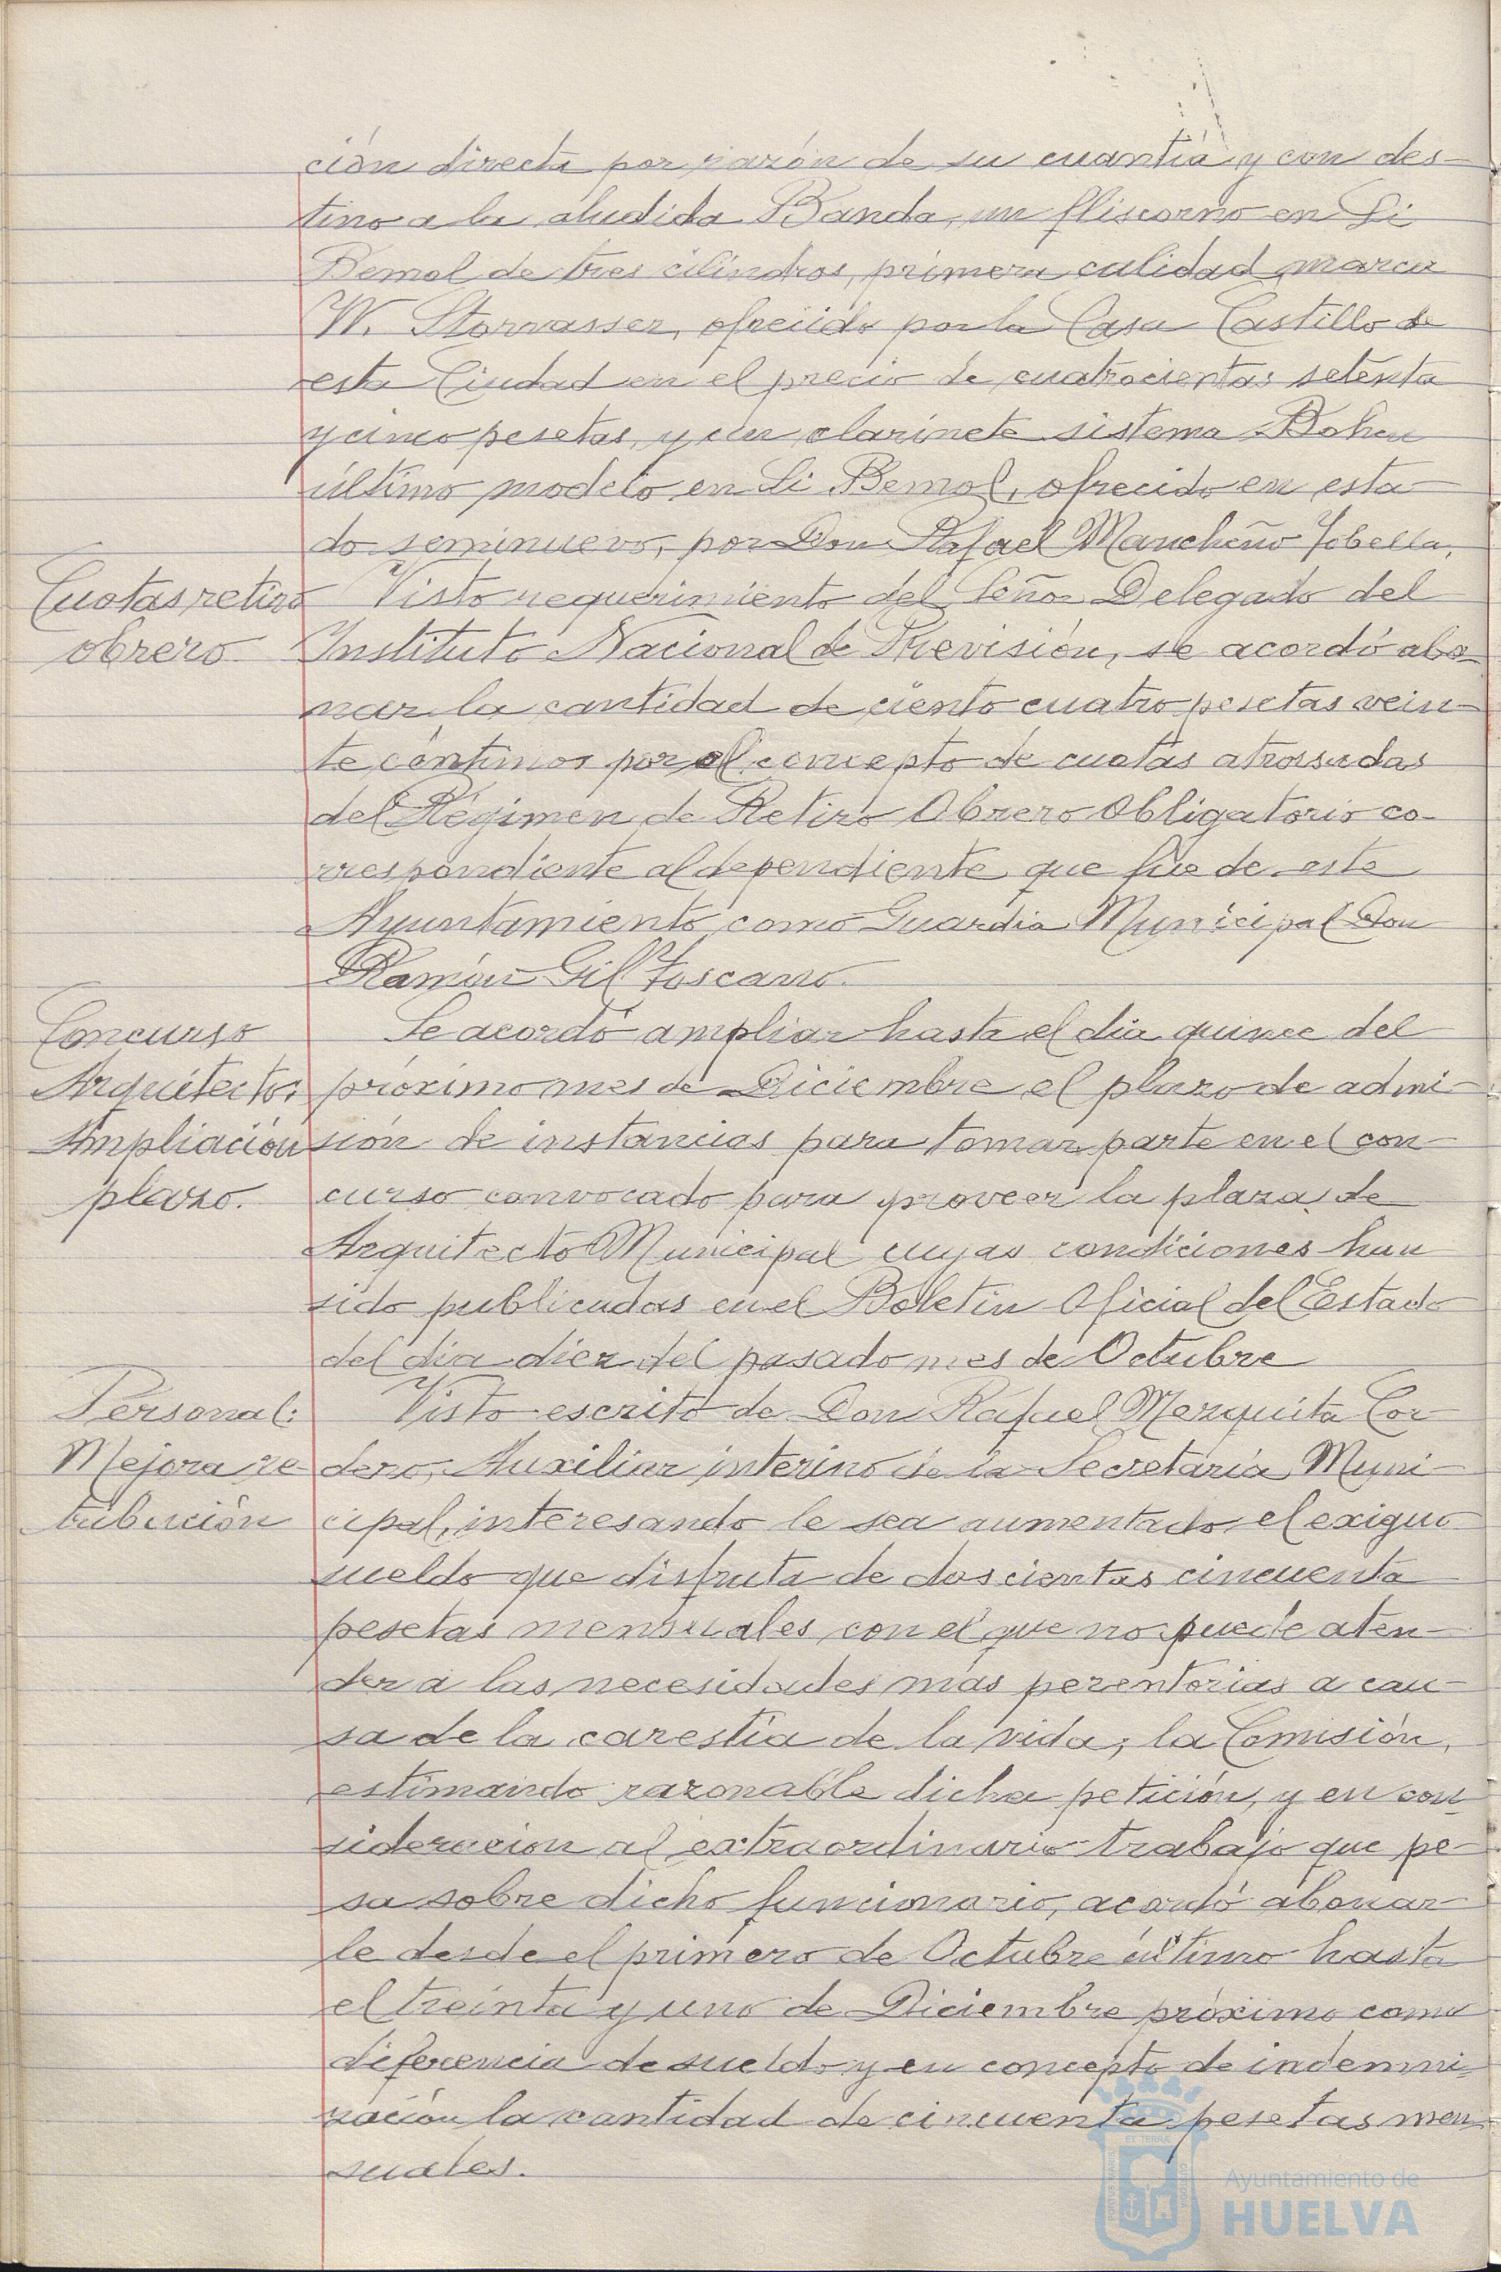 ción directa por razón de su cuantía y con des-
tino a la aludida Banda, un fliscorno en Si
Bemol de tres cilindros, primera calidad, marca
W. Stowasser, ofrecido por la Casa Castillo de
esta Ciudad en el precio de cuatrocientas setenta
y cinco pesetas, y un clarinete sistema Bohen
último modelo en Si Bemol, ofrecido en esta-
do seminuevo, por Don Rafael Mancheño
Cuotas retiro
obrero
Visto requerimiento del Señor Delegado del
Instituto Nacional de Previsión, se acordó abo-
nar la cantidad de ciento cuatro pesetas vein-
te céntimos por el concepto de cuotas atrasadas
del Régimen de Retiro Obrero Obligatorio co-
rrespondiente al dependiente que fue de este
Ayuntamiento como Guardia Municipal Don
Ramón Gil Toscano.
Concurso
Arquitecto:
Ampliación
plazo.
Se acordó ampliar hasta el día quince del
próximo mes de Diciembre el plazo de admi-
sión de instancias para tomar parte en el con-
curso convocado para proveer la plaza de
Arquitecto Municipal cuyas condiciones han
sido publicadas en el Boletín Oficial del Estado
del día diez del pasado mes de Octubre
Personal:
Mejora re-
tribución
Visto escrito de Don Rafael Mezquita Cor-
dero, Auxiliar interino de la Secretaría Muni-
cipal, interesando le sea aumentado el exiguo
sueldo que disfruta de doscientas cincuenta
pesetas mensuales con el que no puede aten-
der a las necesidades mas perentorias a cau-
sa de la carestía de la vida; la Comisión,
estimando razonable dicha petición, y en con-
sideracion al extraordinario trabajo que pe-
sa sobre dicho funcionario, acordó abonar-
le desde el primero de Octubre último hasta
el treinta y uno de Diciembre próximo como
diferencia de sueldo y en concepto de indemni-
zación la cantidad de cincuenta pesetas men-
suales.
Ayuntamiento de
HUELVA